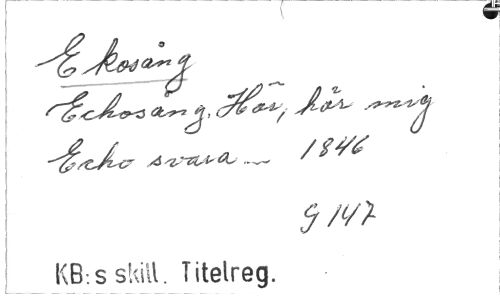 Ekosång
Echosång. Hör, hör mig
Echo svara... 1846
G 147
KB:s skill. Titelreg.